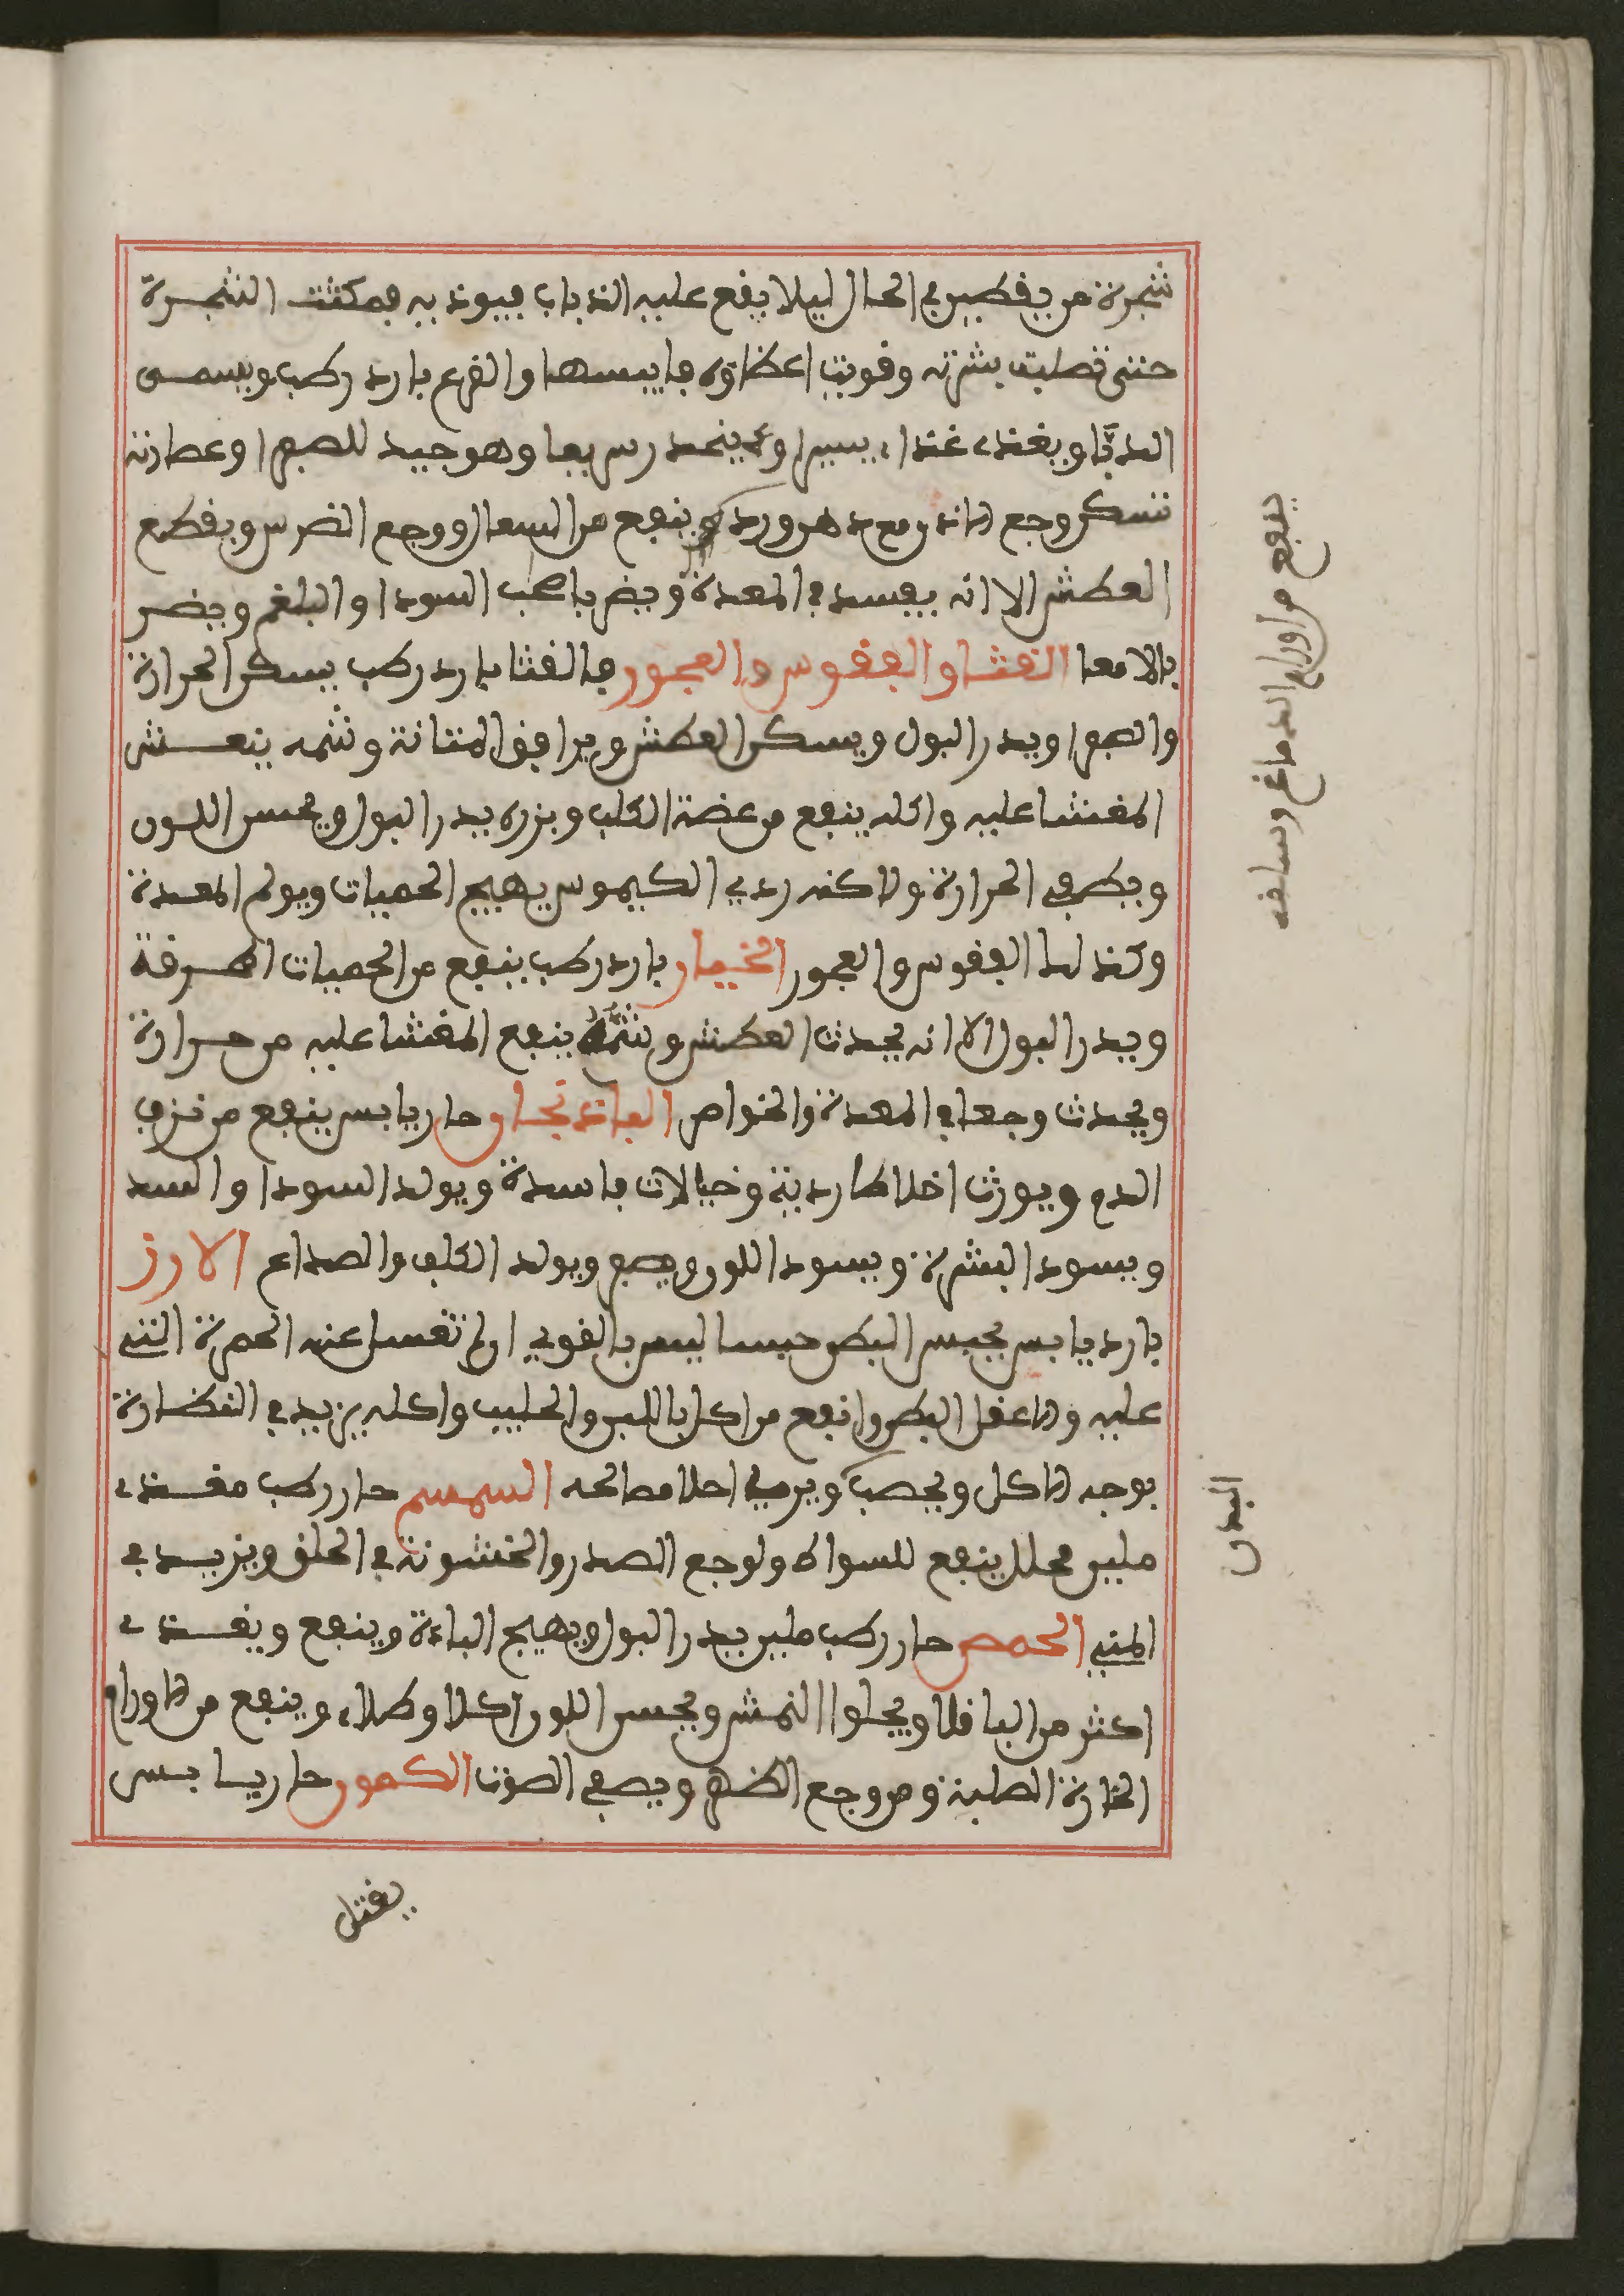 شجرة من يقطين في الحال ليلا يقع عليه الذباب فيوذيه فمكثت الشجرة
حتى تصلبت بشرته وقويت اعظاؤه فايبسها والقرع بارد رطب ويسمى
الدبّا ويغذي غذاء يسيرا وينحدر سريعا وهو جيد للصفرا وعصارته
تسكن وجع الاذن مع دهن ورد وينفع من السعال ووجع الضرس ويقطع
العطش الا انه يفسد في المعدة ويضر باصحب السودا والبلغم ويضر
بالامعا القثا والفقوس والعجور فالقثا بارد رطب يسكن الحرارة
والصفرا ويدر البول ويسكن العطش ويوافق المثانة وشمه ينعش
المغشا عليه واكله ينفع من عضة الكلب وبزره يدر البول ويحسن اللون
ويطفي الحرارة ولاكنه ردي الكيموس يهيج الحميات ويولم المعدة
وكذلك الفقوس والعجور الخيار بارد رطب ينفع من الحميات المحرقة
ويدر البول الا انه يحدث العطش وشمّه ينفع المغشا عليه من حرارة
ويحدث وجعا في المعدة والخواص الباذنجان حار يابس ينفع من نزف
الدم ويورث اخلاطا ردية وخيالات فاسدة ويولد السودا والسدد
ويسود البشرة ويسود اللون ويصفر ويولد الكلف والصداع الارز
بارد يابس يحبس البطن حبسا ليس بالقوي ان لم تغسل عنه الحمرة التي
عليه والا عقل البطن وانفع من اكل باللبن والحليب واكله يزيد في النظارة
بوجه الاكل ويخصب ويري احلاما صالحه السمسم حار رطب مغذي
ملين محلل ينفع للسواك ولوجع الصدر والخشونة في الحلق ويزيد في
المني الحمص حار رطب ملين يدر البول ويهيج الباءة وينفع ويغذي
اكثر من الباقلا ويجلوا النمش ويحسن اللون اكلا وطلاء وينفع من الاورام
الحارة الصلبة ومن وجع الظهر ويصفي الصوت الكمون حار يابس
يقتل
ينفع من اورام الدماغ وسائر
البدن